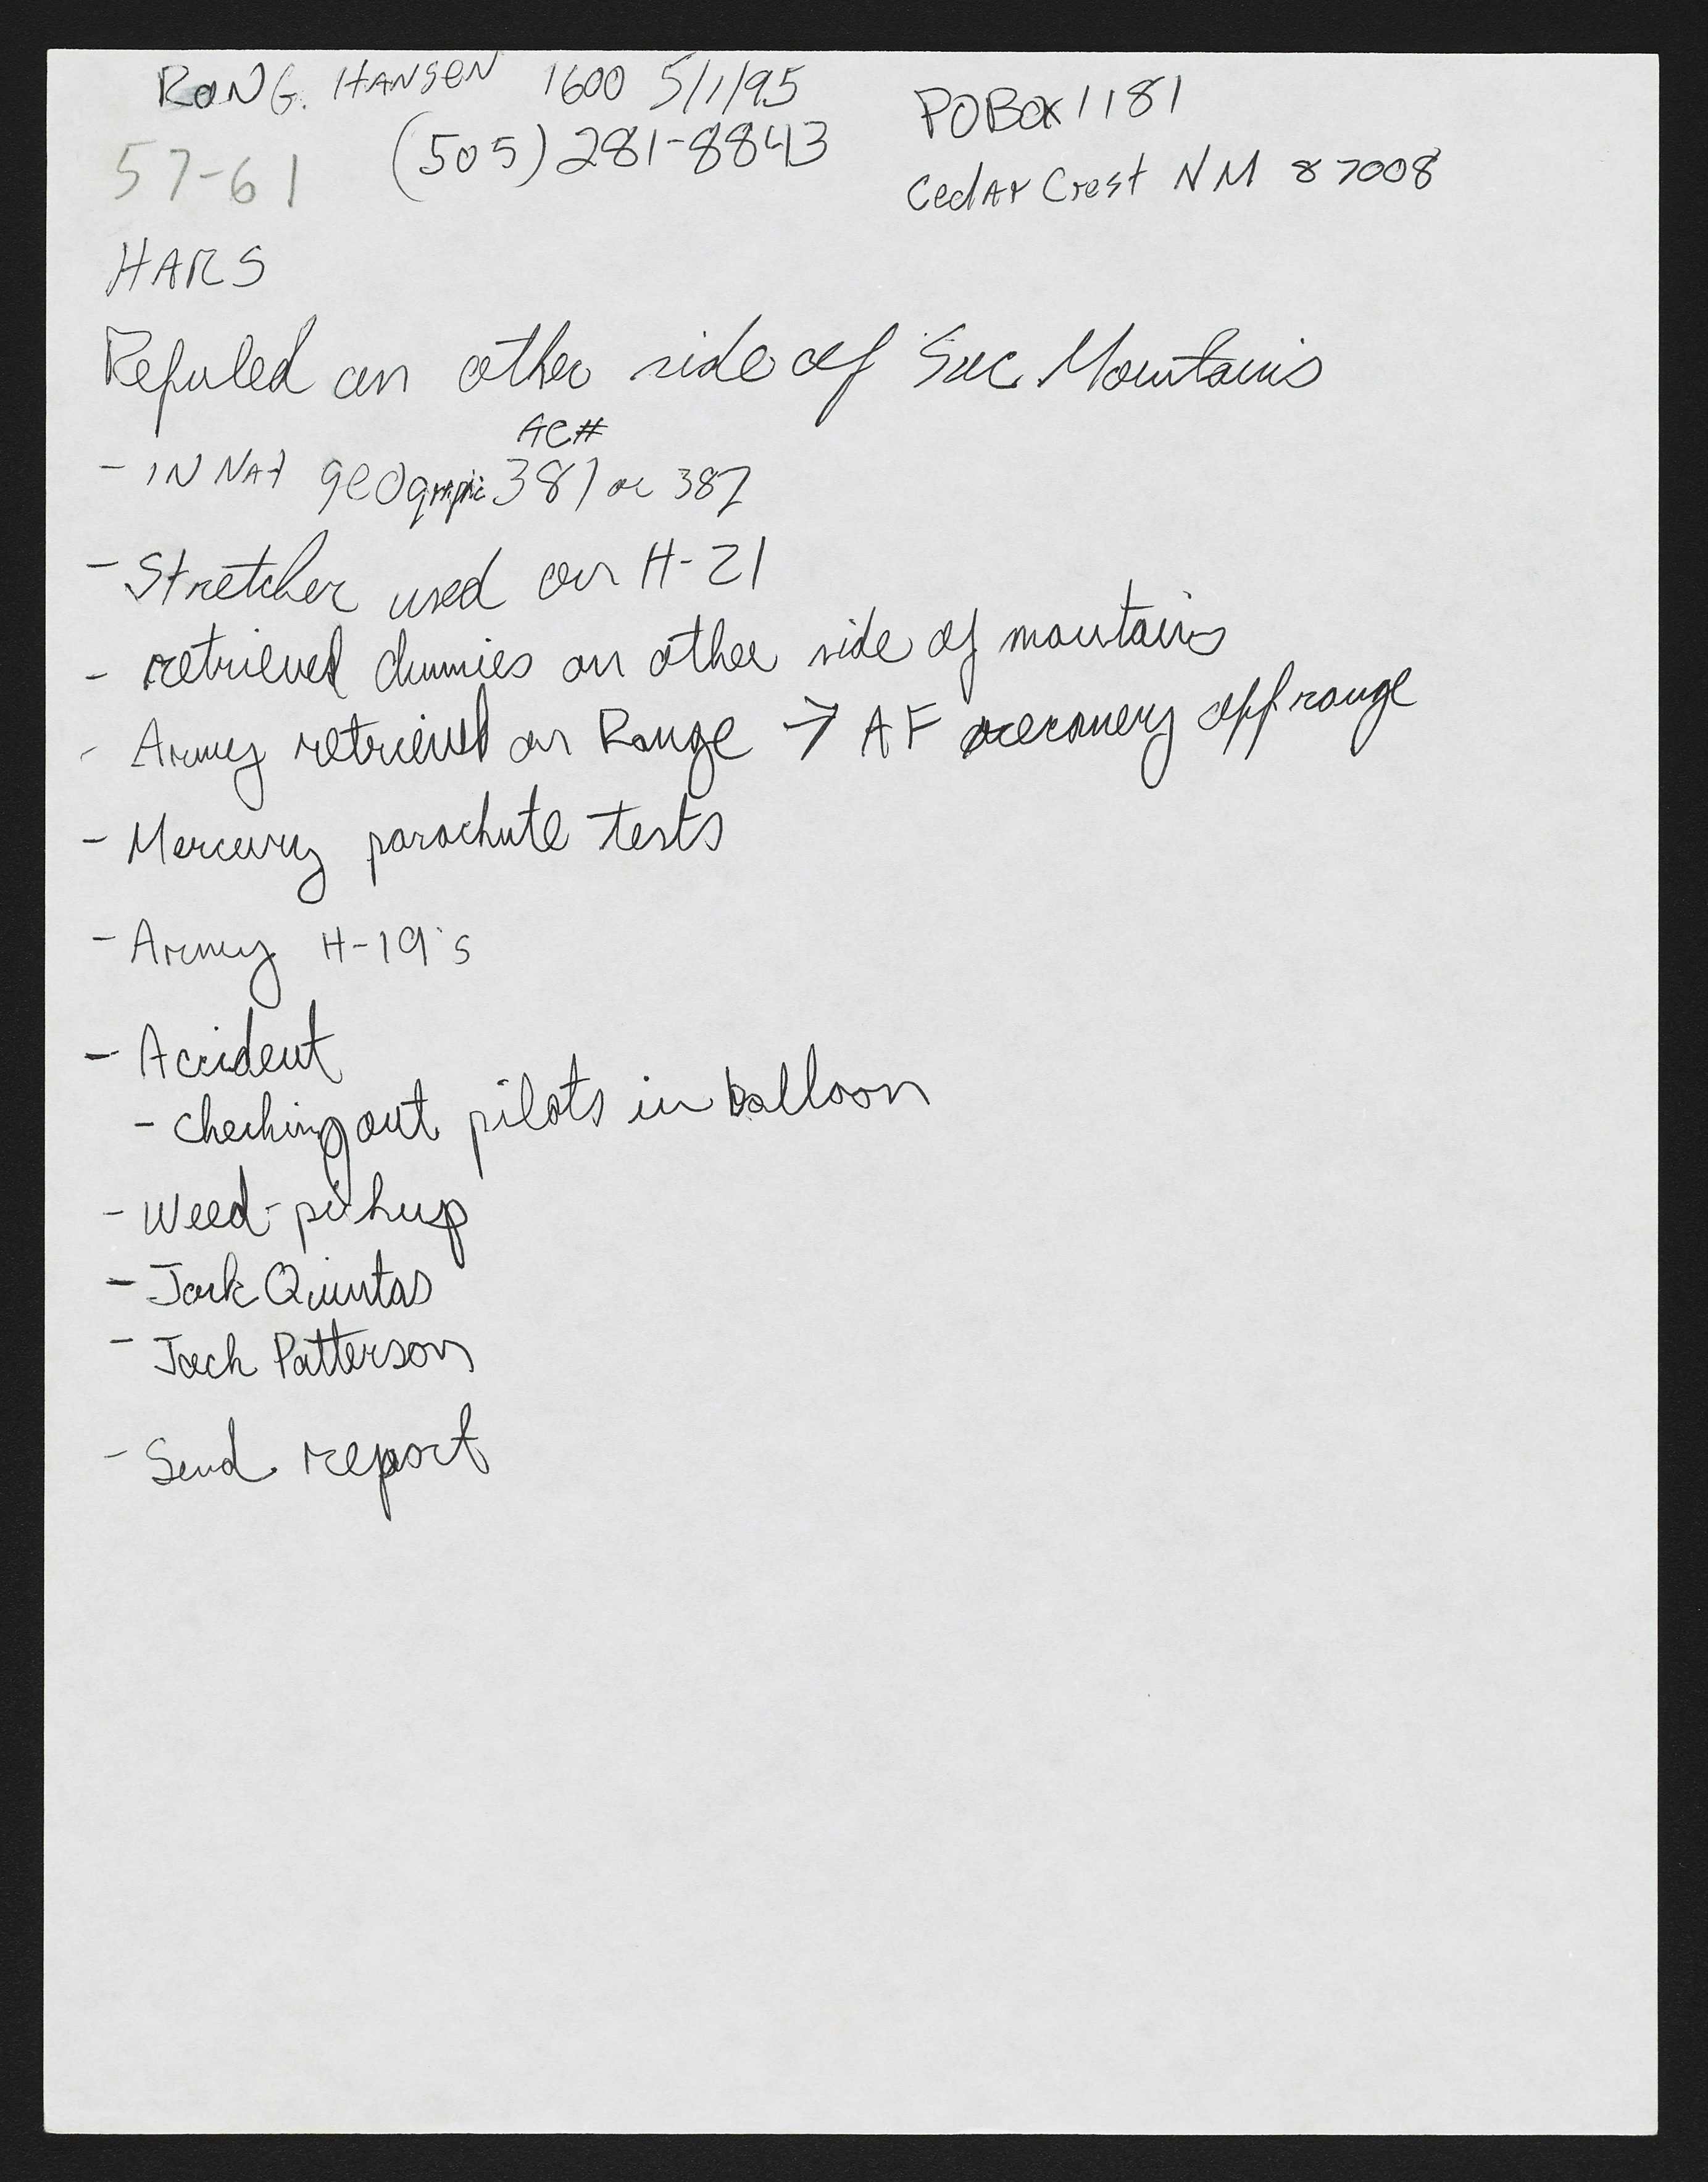 RON G. HANSEN 1600 5/1/95
(505) 281-8843
POBox 1181
Cedar Crest NM 87008
57-61
HARS
Refuled on other side of Sac Mountains
AC#
- IN NAt geographic 381 or 382
- Stretcher used on H-21
- retrieved dummies on other side of mountains
- Army retrieved on Range → AF recovery off range
- Mercury parachute tests
- Army H-19's
- Accident
- checking out pilots in balloon
- Weed - pickup
- Jack Quintas
- Jack Patterson
- Send report